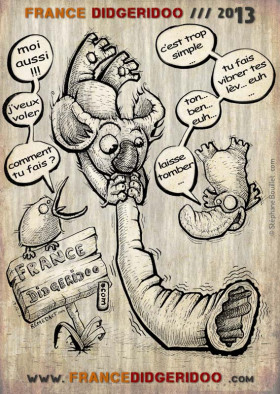 FRANCE DIDGERIDOO /// 2013
moi
aussi
!!!
j'veux
voler
comment
tu fais ?
c'est trop
simple
...
tu fais
vibrer tes
lèv... euh
...
ton...
ben...
euh...
laisse
tomber
...
© Stéphane Bouillet . com
FRANCE
Didgeridoo
WWW. FRANCEDIDGERIDOO .COM